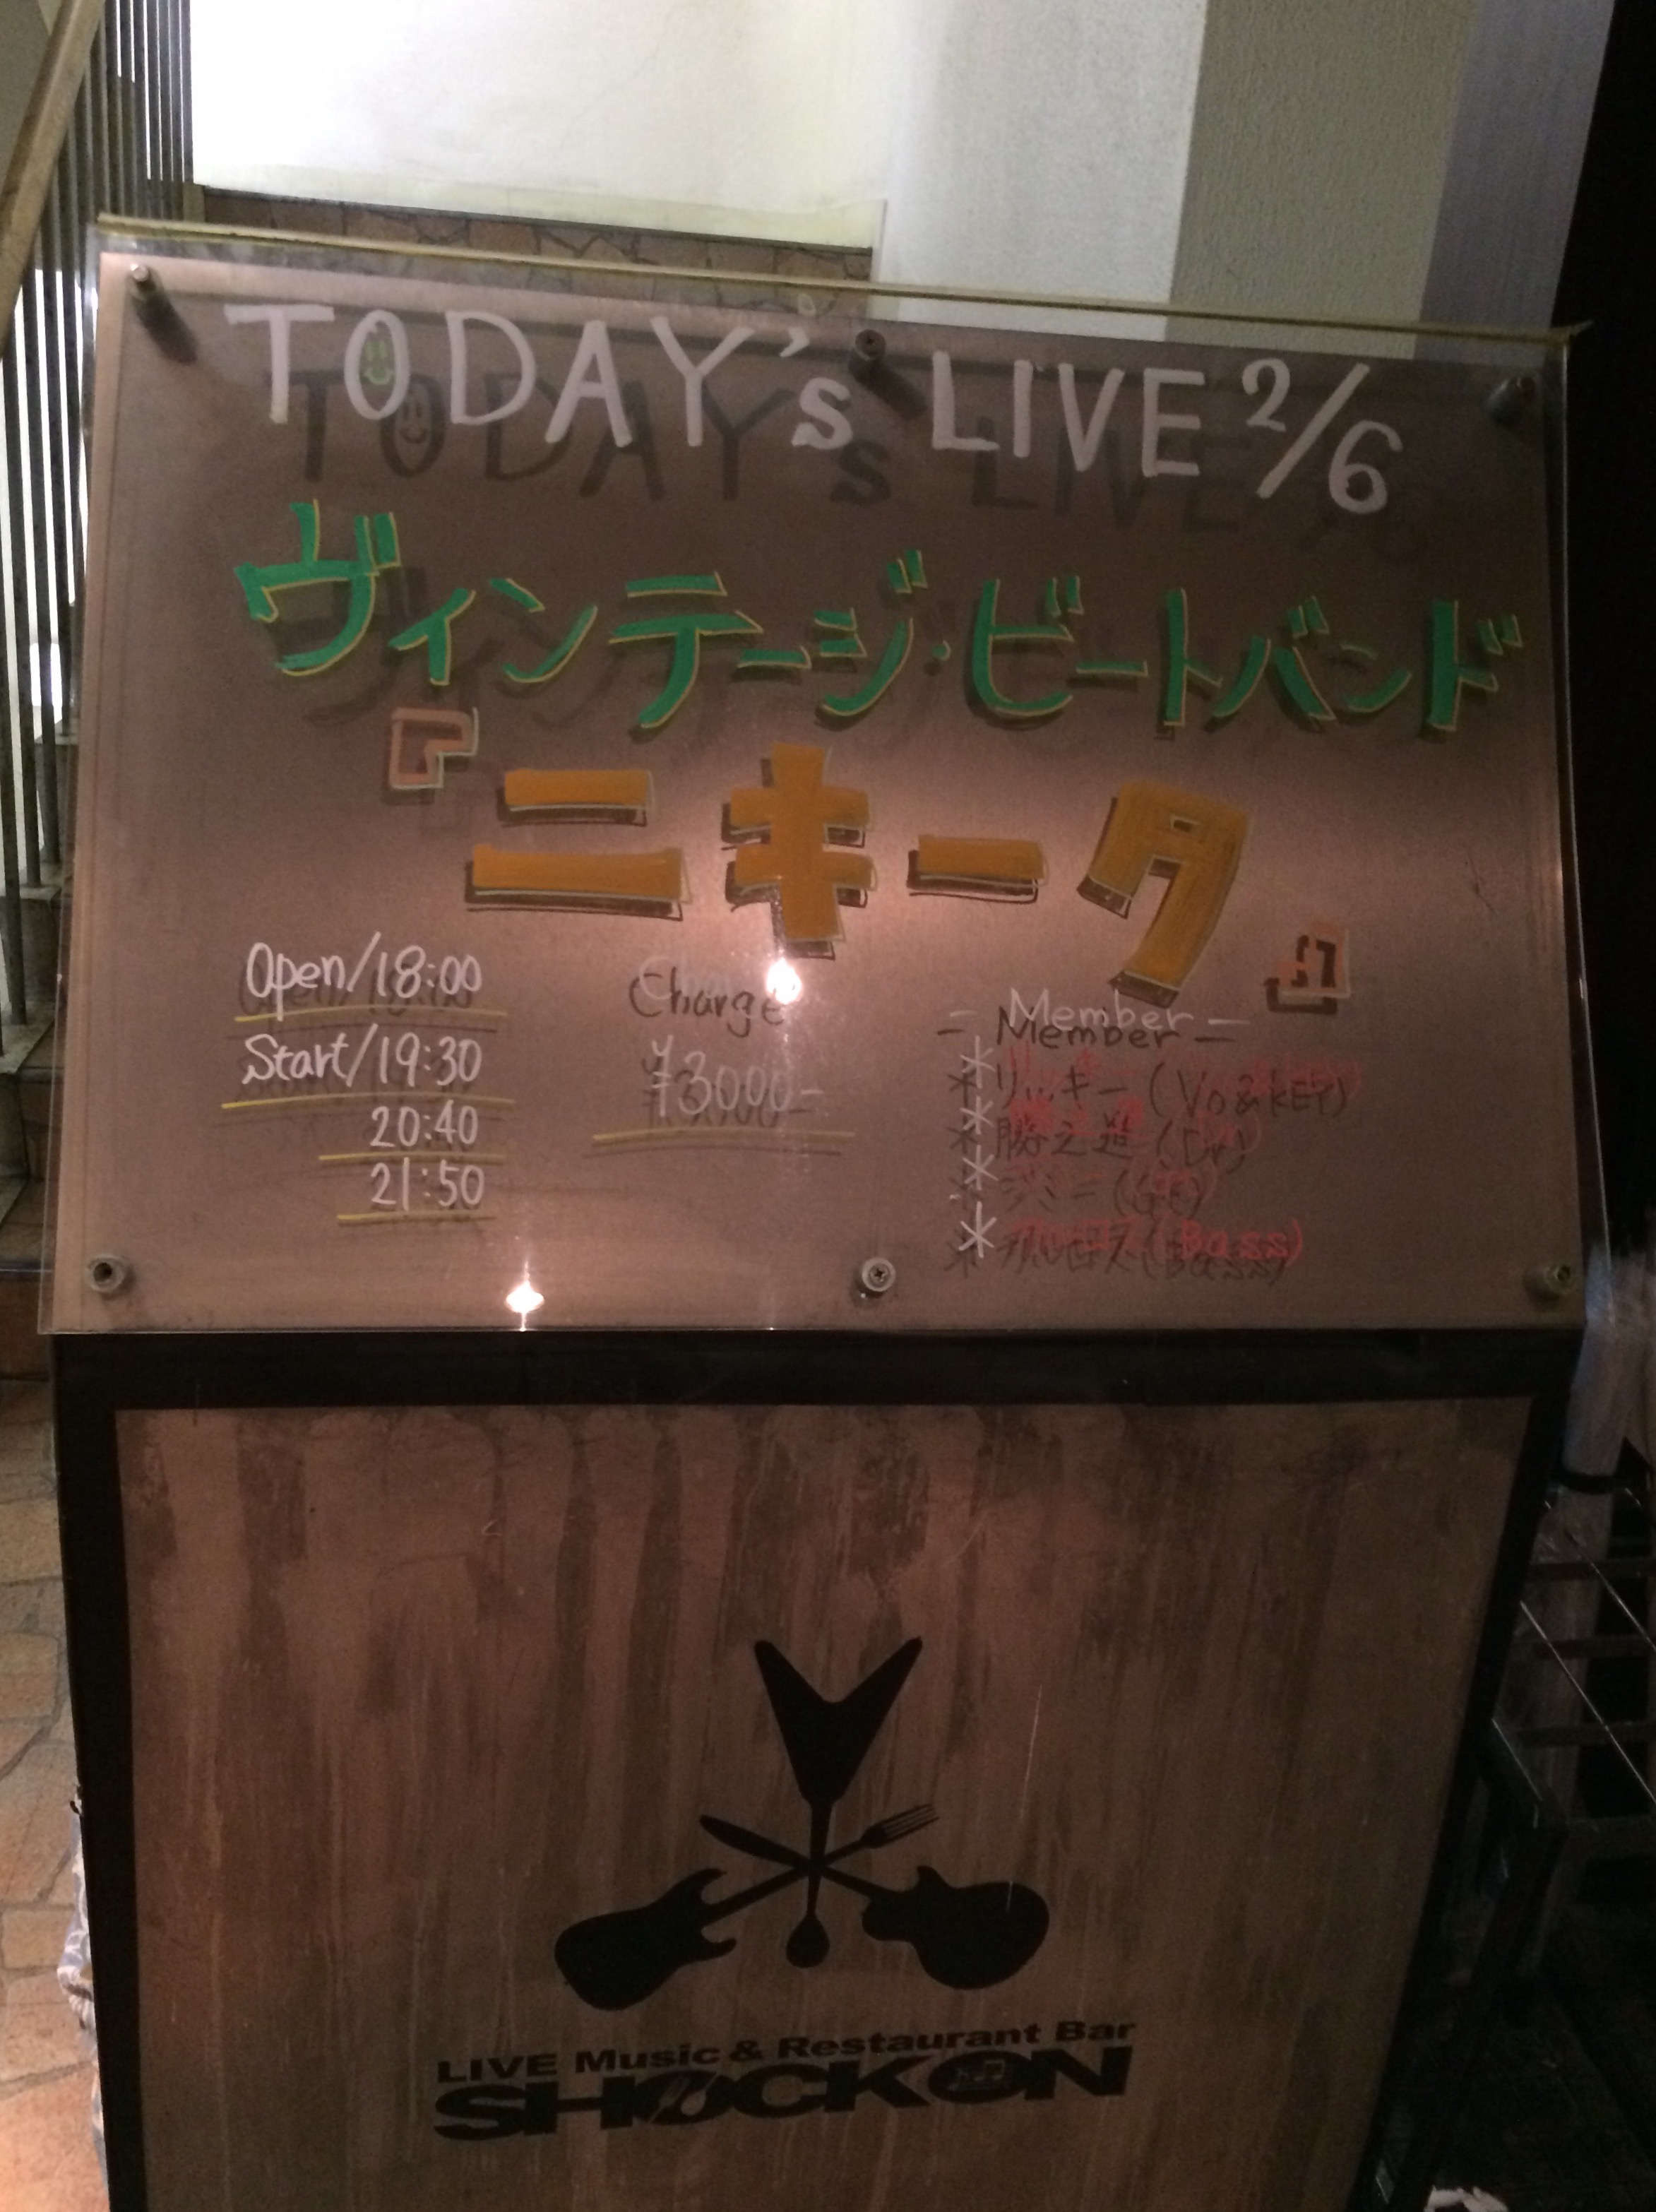 TODAY's LIVE 2/6
ヴィンテージ・ビートバンド
『ニキータ』
Open/18:00
Start/19:30
20:40
21:50
Charge
¥3000-
- Member -
* リッキー (Vo&KEY)
* 勝之進 (Dr)
* ジミー (Gt)
* カルロス (Bass)
LIVE Music & Restaurant Bar
SHOCKON